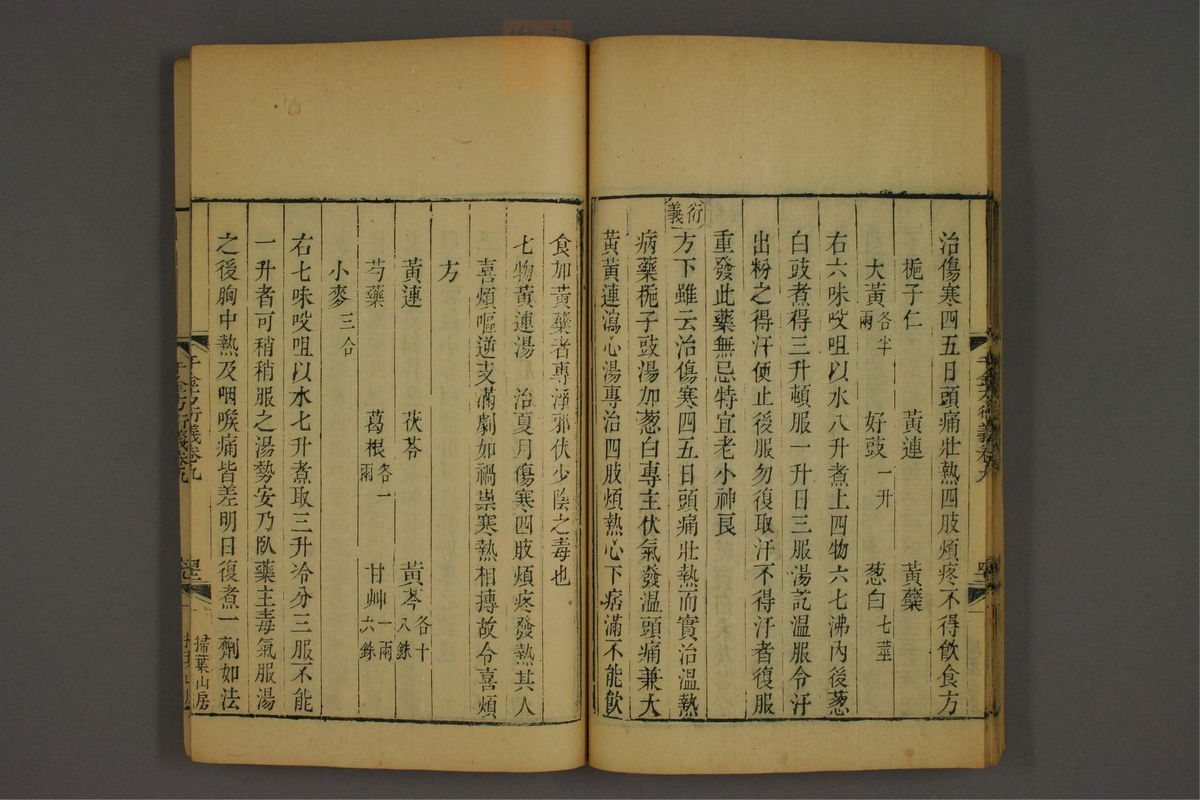 治傷寒四五日頭痛壯熱四肢煩疼不得飲食方
梔子仁　黃連　黃蘗
大黃各半兩　好豉一升　葱白七莖
右六味㕮咀以水八升煮上四物六七沸內後葱
白豉煮得三升頓服一升日三服湯訖溫服令汗
出粉之得汗便止後服勿復取汗不得汗者復服
重發此藥無忌特宜老小神良
衍義
方下雖云治傷寒四五日頭痛壯熱而實治溫熱
病藥梔子豉湯加葱白專主伏氣發溫頭痛兼大
黃黃連瀉心湯專治四肢煩熱心下痞滿不能飲
食加黃蘗者專淨邪伏少陰之毒也
七物黃連湯　治夏月傷寒四肢煩疼發熱其人
喜煩嘔逆支滿劇如禍祟寒熱相搏故令喜煩
方
黃連　茯苓　黃芩各十八銖
芍藥　葛根各一兩　甘艸一兩六銖
小麥三合
右七味㕮咀以水七升煮取三升冷分三服不能
一升者可稍稍服之湯勢安乃臥藥主毒氣服湯
之後胸中熱及咽喉痛皆差明日復煮一劑如法
千金方衍義卷九
掃葉山房